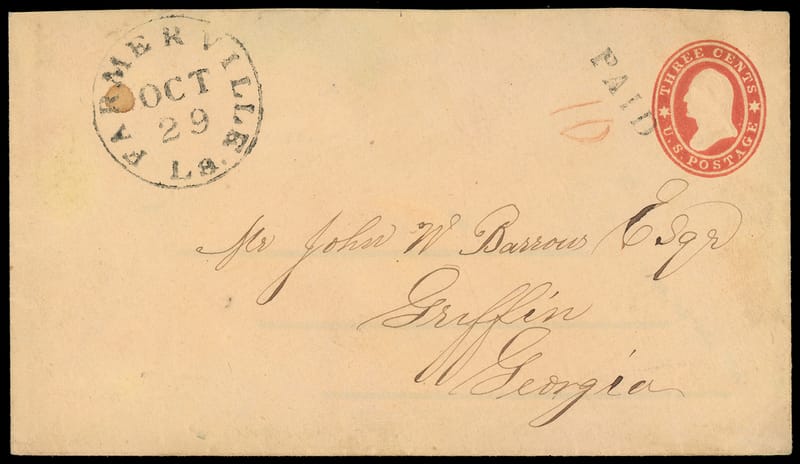 FARMERVILLE
OCT
29
La.
PAID
10
THREE CENTS
U.S. POSTAGE
Mr John W Barrows Esqr
Griffin
Georgia